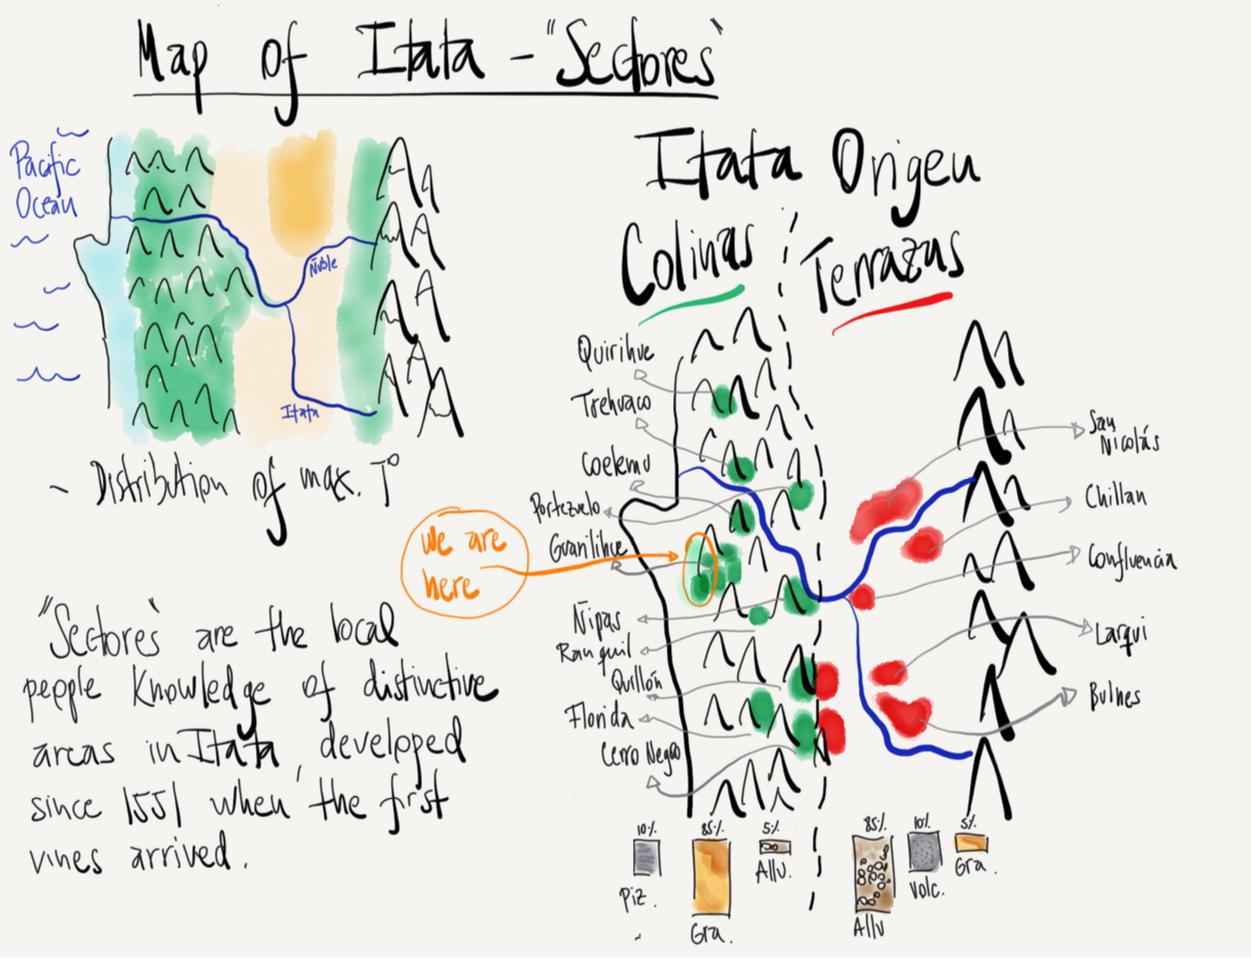 Map of Itata - "Sectores"
Pacific
Ocean
Ñuble
Itata
- Distribution of max. T°
"Sectores" are the local
people knowledge of distinctive
areas in Itata, developed
since 1551 when the first
vines arrived.
we are
here
Itata Origen
Colinas
Terrazas
Quirihue
Trehuaco
Coelemu
Portezuelo
Guarilihue
Ñipas
Ranquil
Quillón
Florida
Cerro Negro
San
Nicolás
Chillan
Confluencia
Larqui
Bulnes
10% 85% 5%
Piz. Gra. Allu.
85% 10% 5%
Allv Volc. Gra.